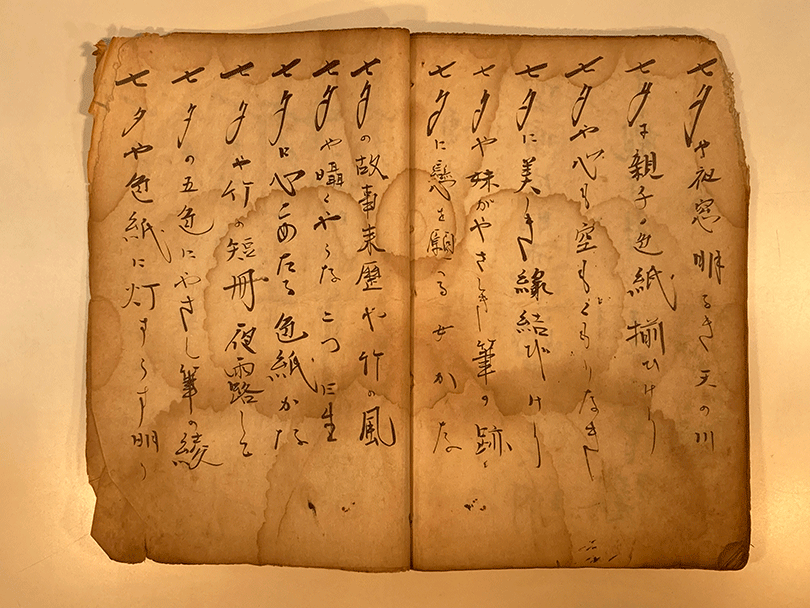 七夕や夜窓明るき天の川
七夕は親子の色紙揃ひけり
七夕や心も空もくもりなき
七夕に美しき縁結びけり
七夕や妹がやさしき筆の跡
七夕に恋を願へる女かな
七夕の故事来歴や竹の風
七夕や囁くやうな二つ星
七夕に心こめたる色紙かな
七夕や竹の短冊夜雨路して
七夕の五色にやさし筆の綾
七夕や色紙に灯すうす明り